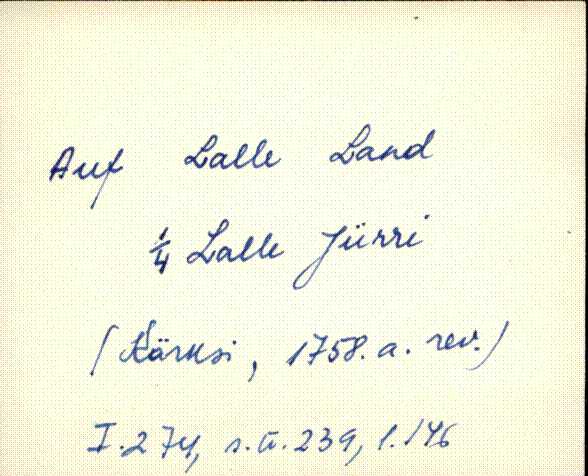 Auf Lalle Land
1/4 Lalle Jürri
(Kärksi, 1758. a. rev.)
I.274, s.ü. 239, l. 146